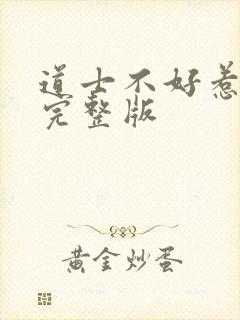 道士不好惹
完整版
黄金炒蛋